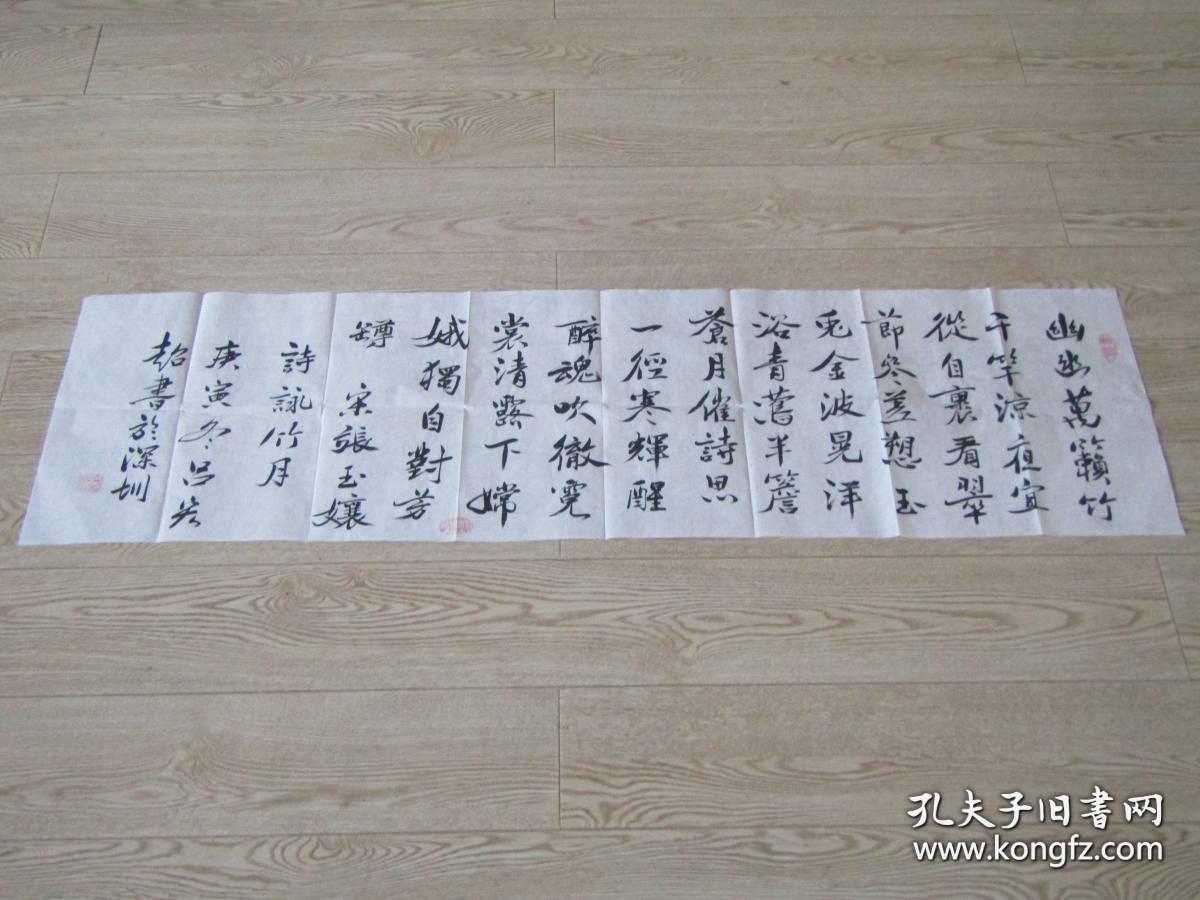 幽幽萬籟竹
千竿涼夜宜
從自裏看翠
節參差想玉
兎金波晃洋
浴青鸞半簷
蒼月催詩思
一徑寒輝醒
醉魂吹徹霓
裳清露下嫦
娥獨自對芳
罇 宋張玉孃
詩詠竹月
庚寅冬呂
書於深圳
孔夫子旧书网
www.kongfz.com